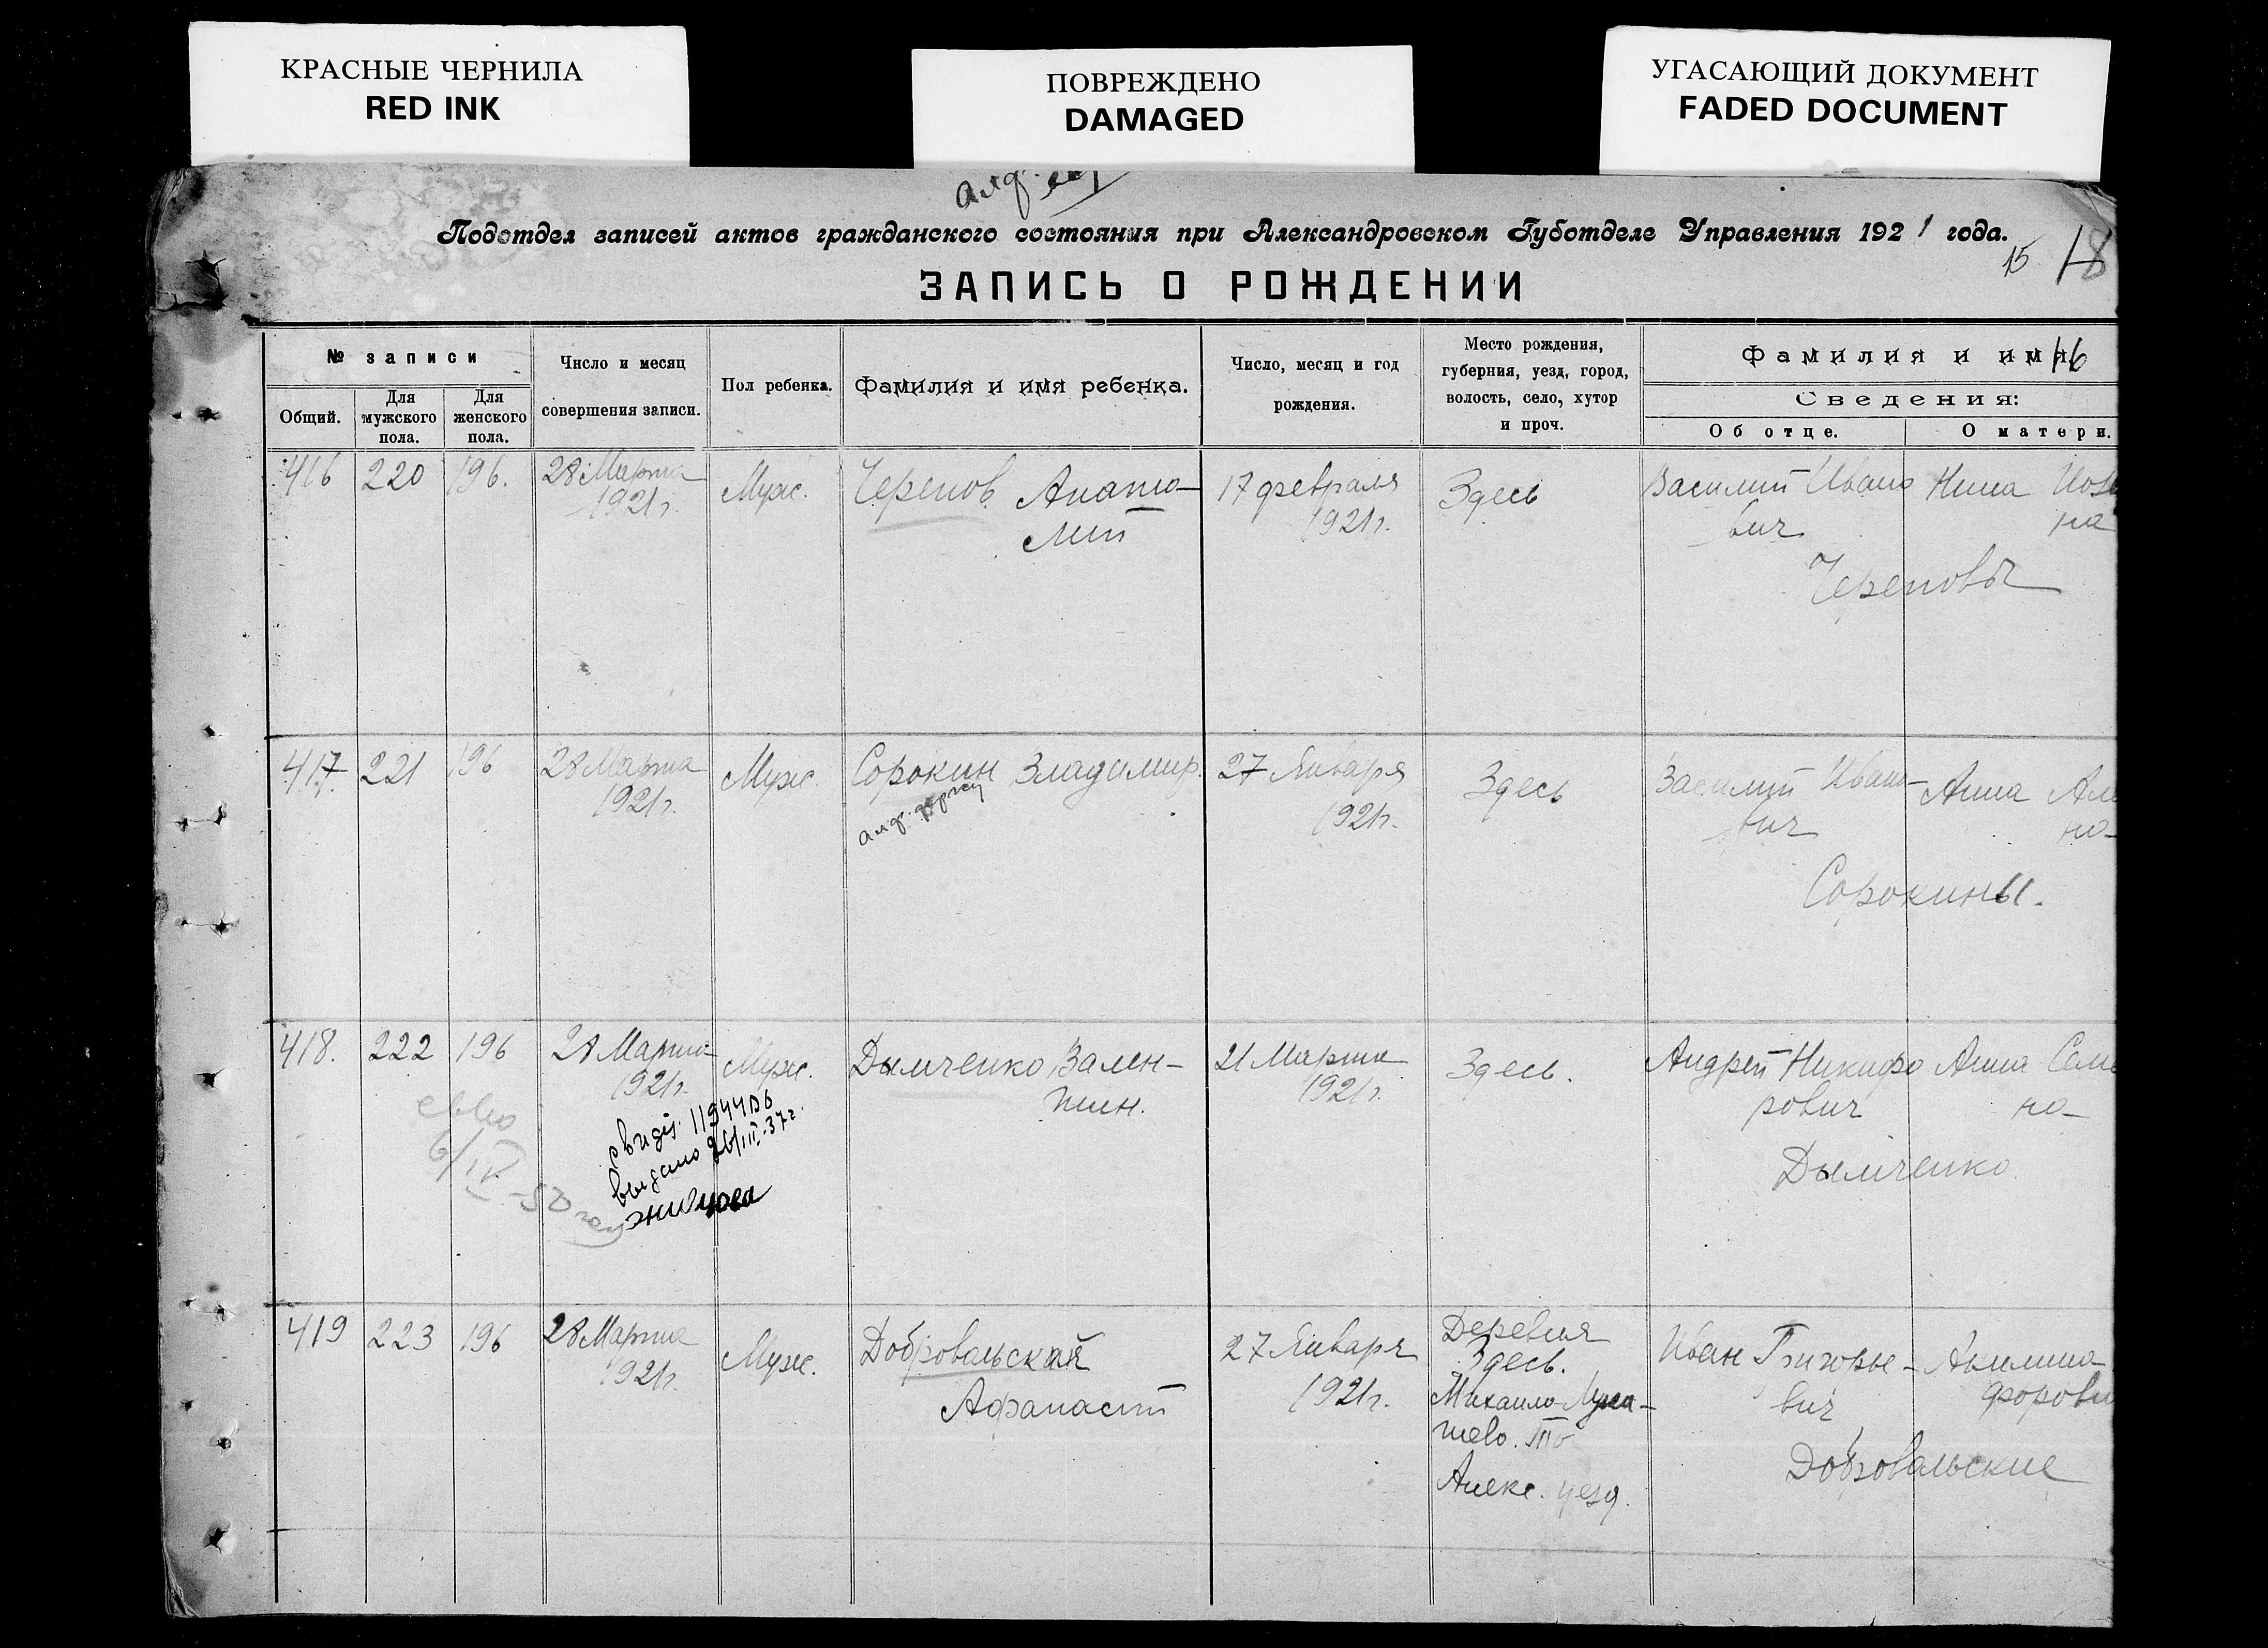 КРАСНЫЕ ЧЕРНИЛА
RED INK
ПОВРЕЖДЕНО
DAMAGED
УГАСАЮЩИЙ ДОКУМЕНТ
FADED DOCUMENT
Подотдел записей актов гражданского состояния при Александровском Губотделе Управления 1921 года.
15 18
ЗАПИСЬ О РОЖДЕНИИ
№ записи
Общий.
Для мужского пола.
Для женского пола.
Число и месяц
совершения записи.
Пол ребенка.
Фамилия и имя ребенка.
Число, месяц и год
рождения.
Место рождения,
губерния, уезд, город,
волость, село, хутор
и проч.
Фамилия и имя
16
Сведения:
Об отце.
О матери.
416 220 196. 28 Марта Муж. Черепов Анато- 17 февраля Здесь Василий Ивано Нина
1921 г. лий 1921 г. вич на
Череповы
417 221 196 28 Марта Муж. Сорокин Владимир. 27 Января Здесь Василий Ивано- Анна
1921 г. 1921 г. вич но-
Сорокины.
418. 222 196 28 Марта Муж. Дымченко Вален- 21 Марта Здесь. Андрей Никифо Анна
1921 г. тин. 1921 г. рович но-
выдано 26/III-37 г.
6/IV-50
Дымченко
419 223 196 28 Марта Муж. Добровольский 27 Января Деревня Иван Григорье- Акилина
1921 г. Афанасий 1921 г. Здесь. вич
Михаило-Лука-
шево.
Алекс. уезд.
Добровольские